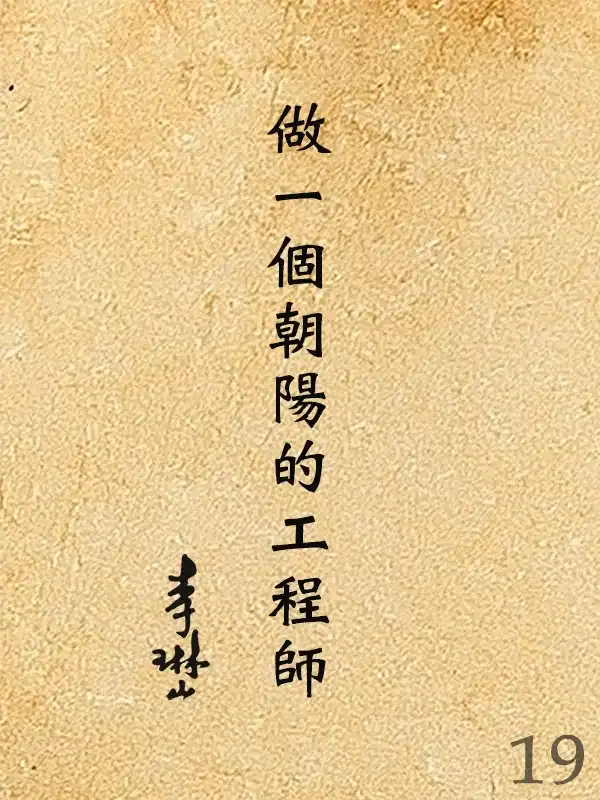 做一個朝陽的工程師
李琳山
19